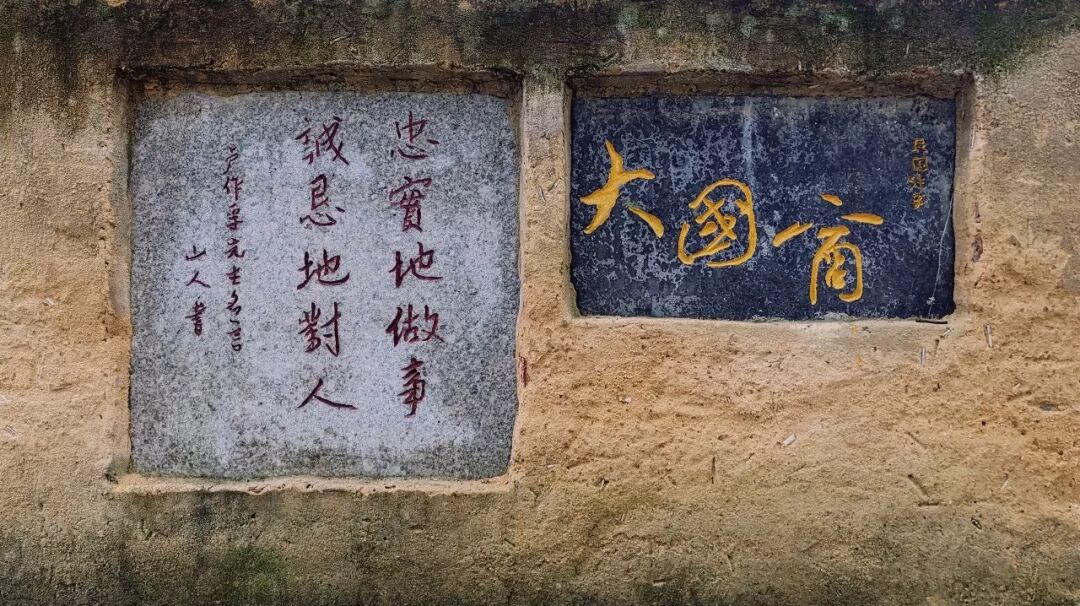 忠實地做事
誠恳地對人
卢作孚先生名言
山人書
大國商